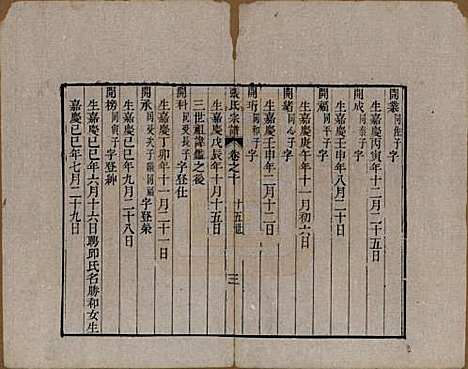 開業同性子字
生嘉慶丙寅年十二月二十五日
開成同泰子字
生嘉慶壬申年八月二十日
開福同平子字
生嘉慶庚午年十一月初六日
開緒同心子字
生嘉慶壬申年二月十二日
開珩同和子字
生嘉慶戊辰年十月十五日
張氏宗譜 卷之十 十五世 三
三世祖諱鑑之後
開科同發長子字登仕
生嘉慶丁卯年十一月二十一日
開承同發子嗣同福字登榮
生嘉慶己巳年九月二十八日
開榜同寅子字登紳
生嘉慶己巳年六月十六日聘邱氏名勝和女生
嘉慶己巳年七月二十九日